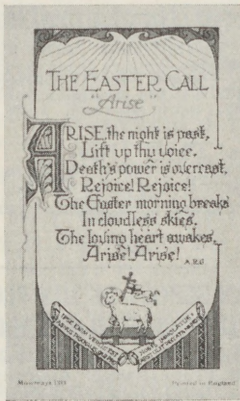 THE EASTER CALL
"Arise"
ARISE, the night is past,
Lift up thy voice.
Death's power is overcast,
Rejoice! Rejoice!
The Easter morning breaks
In cloudless skies.
The loving heart awakes,
Arise! Arise!
Printed in England